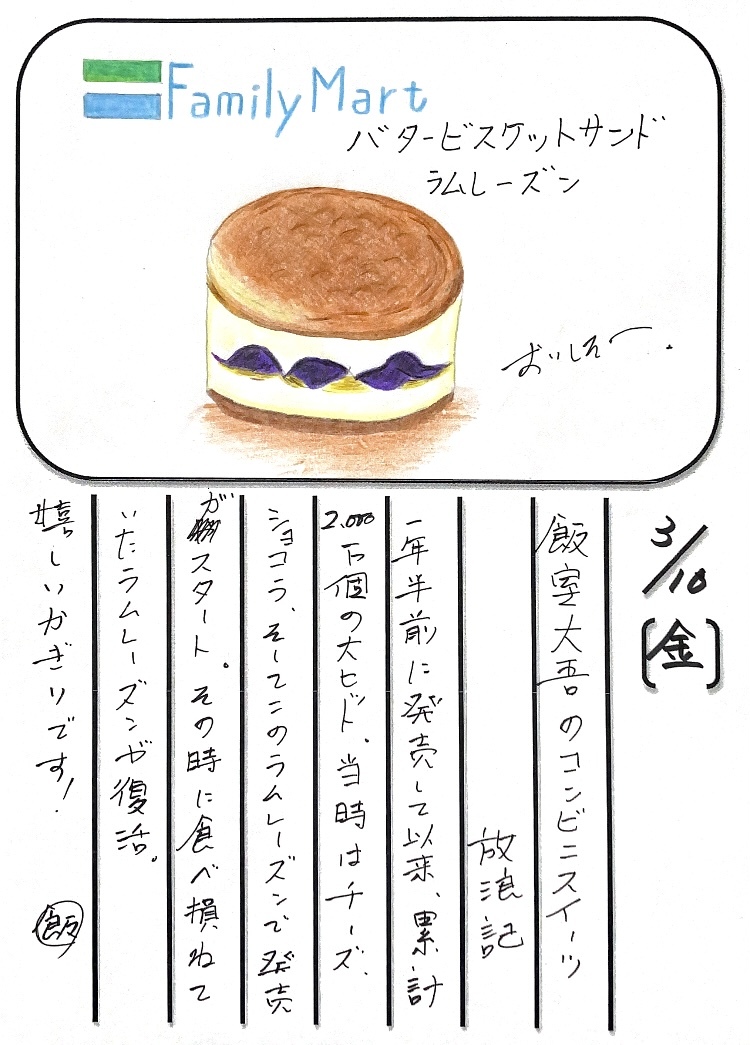 FamilyMart
バタービスケットサンド
ラムレーズン
おいしそー.
3/10
[金]
飯室大吾のコンビニスイーツ
放浪記
一年半前に発売して以来、累計
2,000万個の大ヒット。当時はチーズ、
ショコラ、そしてこのラムレーズンで発売
がスタート。その時に食べ損ねて
いたラムレーズンが復活。
嬉しいかぎりです!
飯